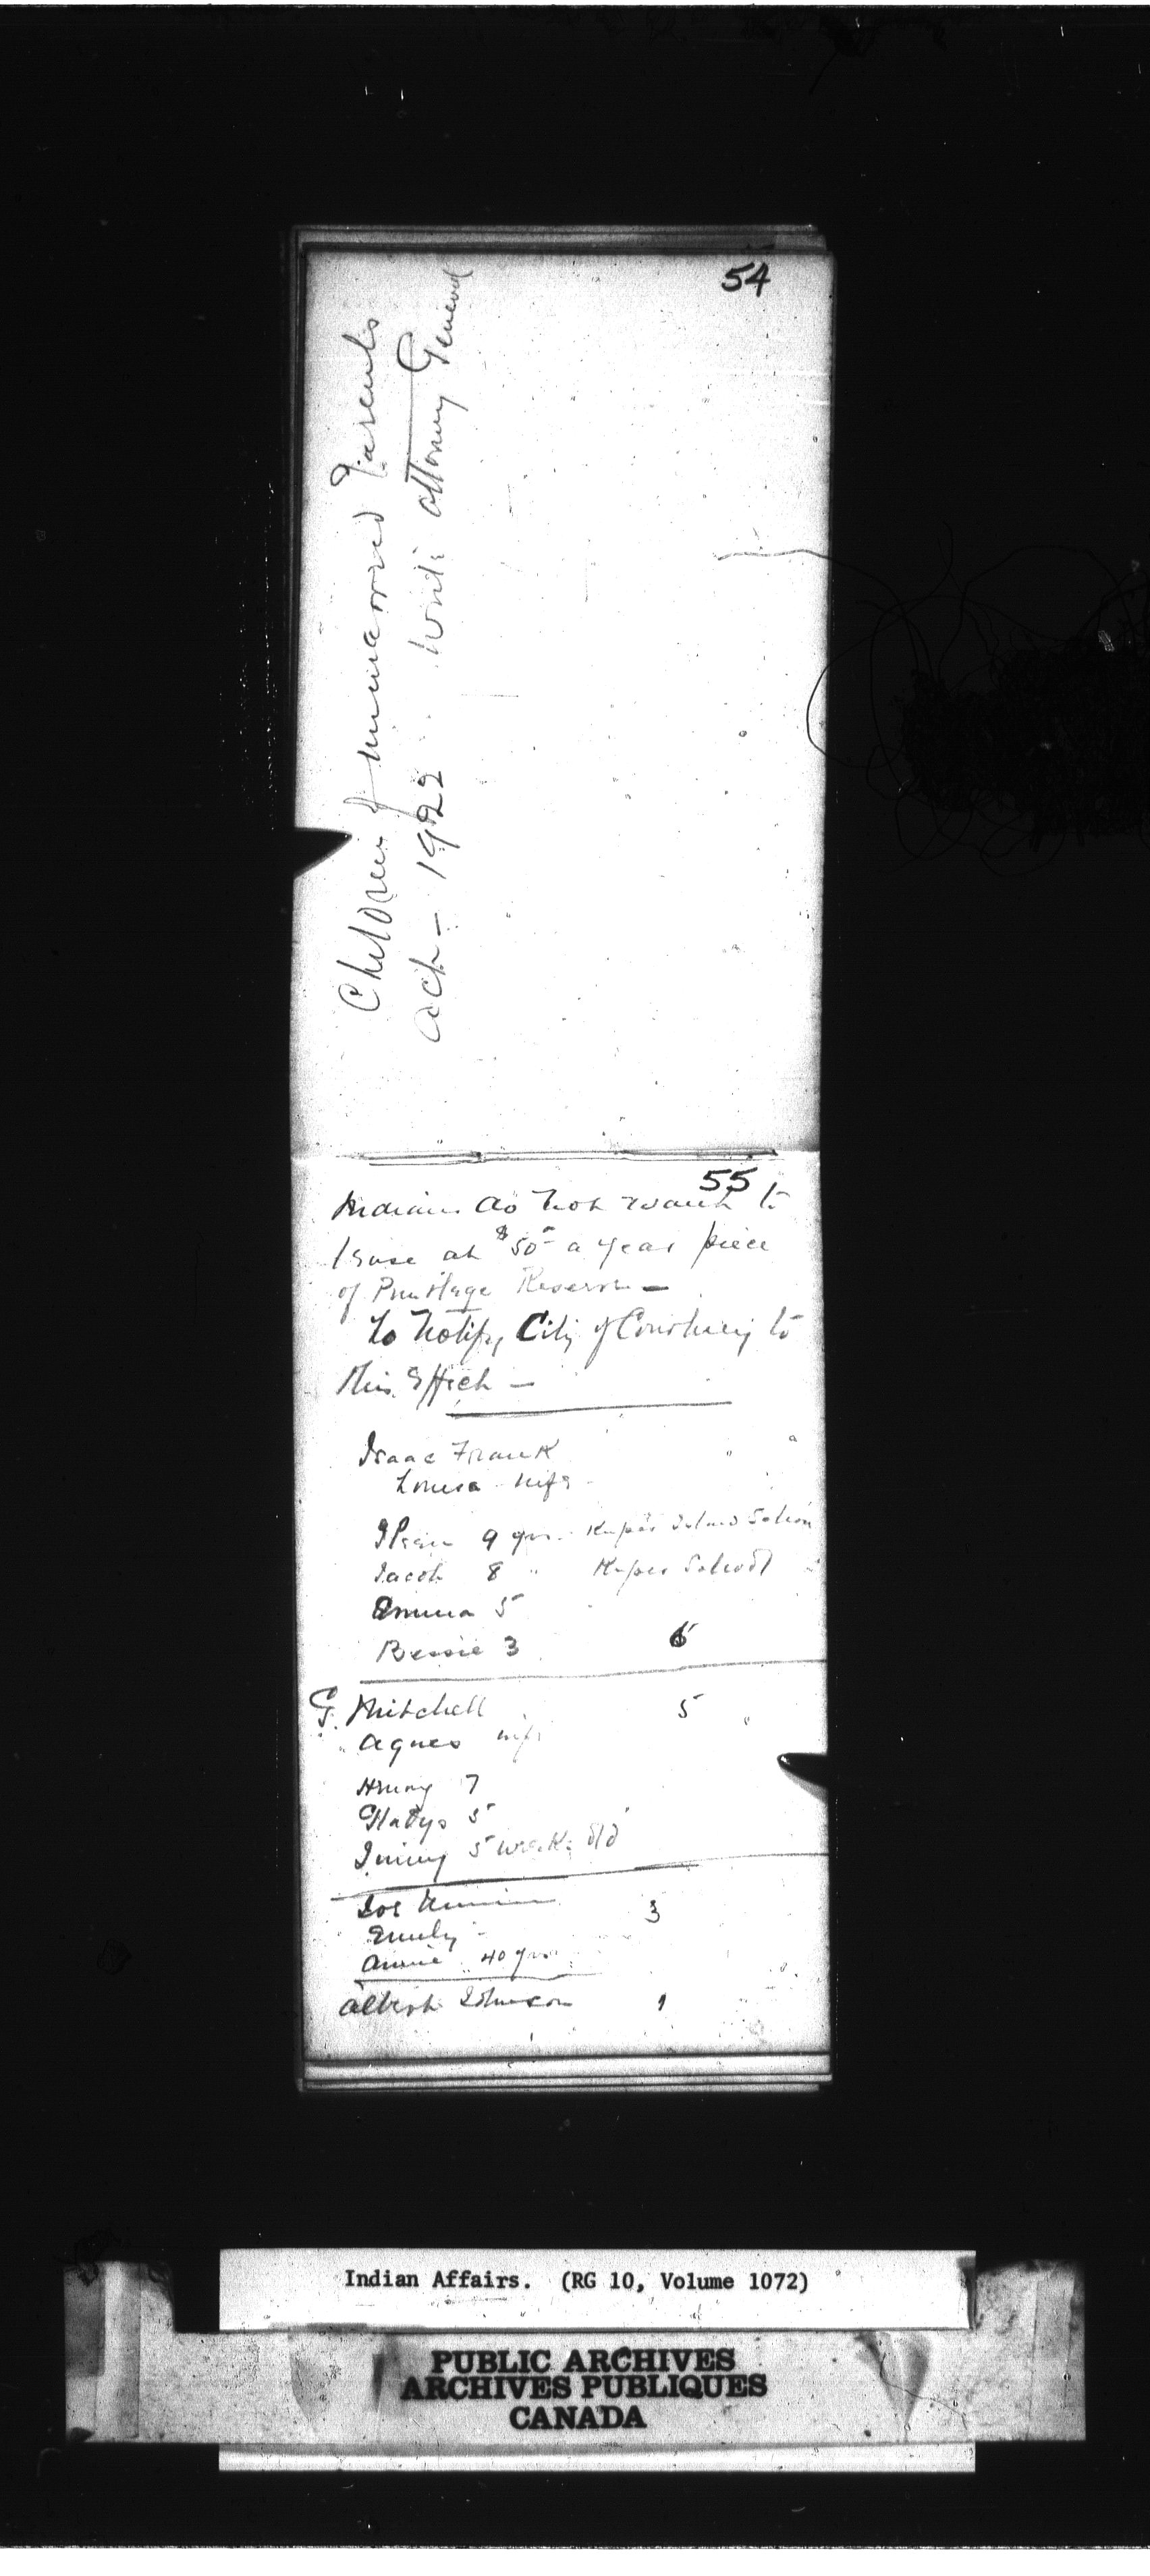 54
Children of unmarried Parents
Act - 1922. Write Attorney General
55
Indians do not want to
lease at $50 a year piece
of Puntlage Reserve -
to notify City of Courtney to
this Effect -
Isaac Frank
Louisa wife
9 yrs. Kuper Island School
Jacob 8 " Kuper School
Emma 5
Bessie 3 6
G. Mitchell 5
Agnes wife
Henry 7
Gladys 5
Jimmy 5 weeks old
Joe 3
Emily
Annie 40 yrs.
Albert Johnson 1
Indian Affairs. (RG 10, Volume 1072)
PUBLIC ARCHIVES
ARCHIVES PUBLIQUES
CANADA